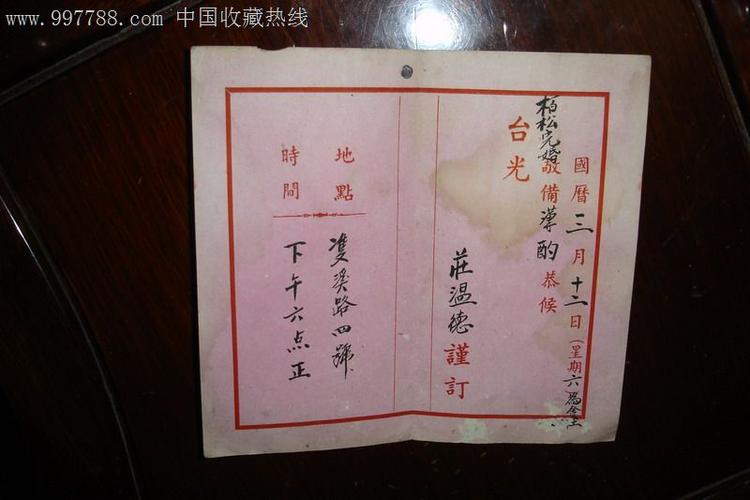 www.997788.com 中国收藏热线
國曆三月十二日(星期六為
柏松完婚敬備薄酌恭候
台光
莊温德謹訂
地點
雙溪路四號
時間
下午六点正